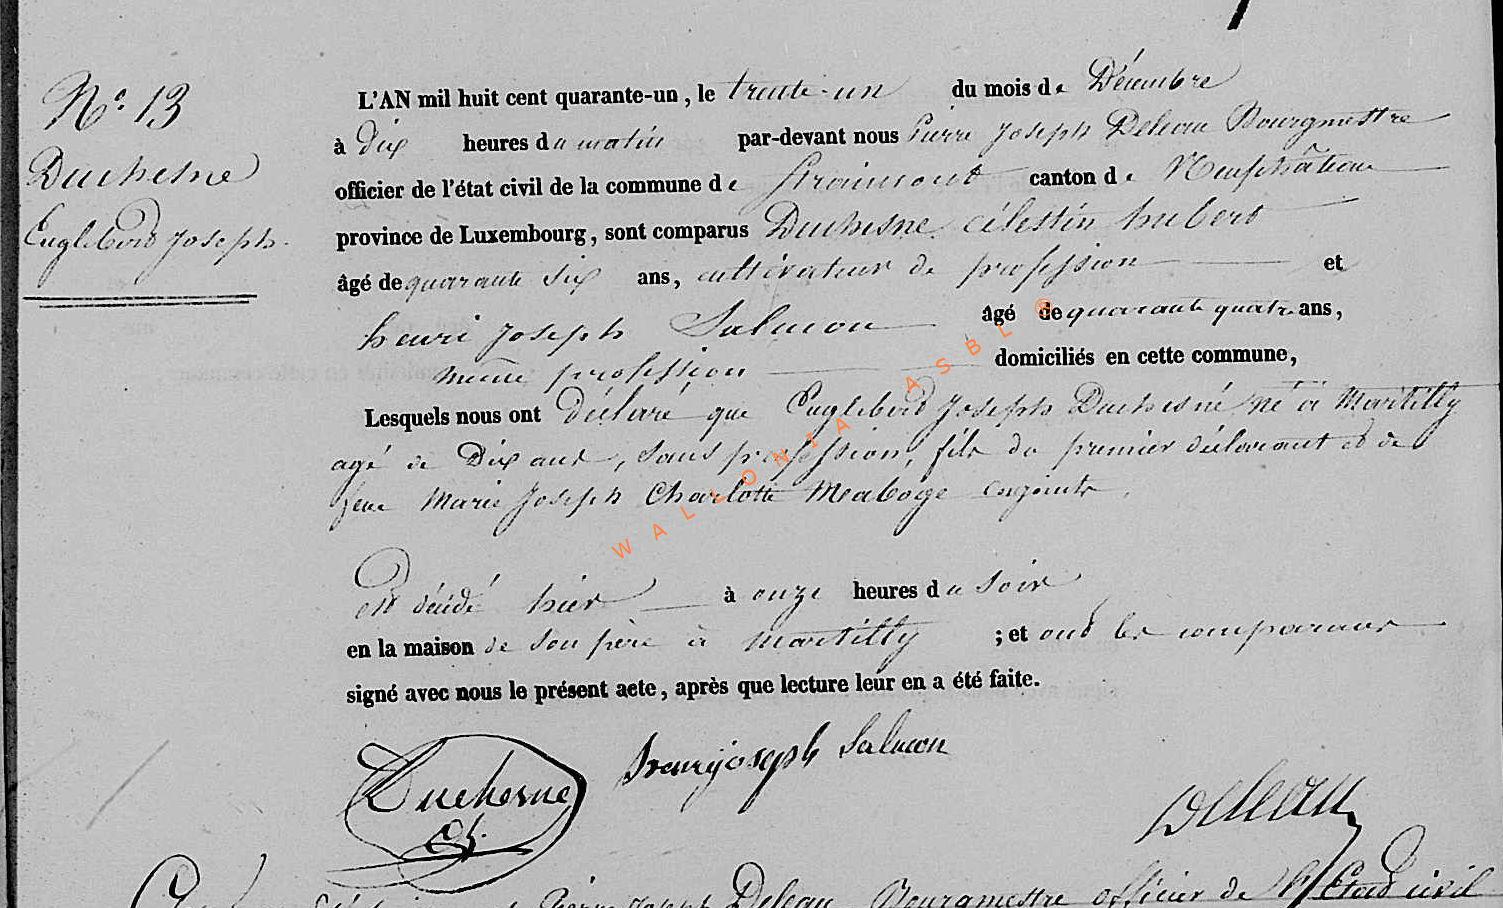 N.º 13
Duchesne
Englebert Joseph.
L'AN mil huit cent quarante-un, le trente-un du mois de Décembre
à Dix heures du matin par-devant nous Pierre Joseph Deleau Bourgmestre
officier de l'état civil de la commune de Straimont canton de Neufchâteau
province de Luxembourg, sont comparus Duchesne célestin hubert
âgé de quarante six ans, cultivateur de profession et
henri Joseph Salmon âgé de quarante quatre ans,
même profession domiciliés en cette commune,
Lesquels nous ont déclaré que Englebert Joseph Duchesne né à Martilly
agé de Dix ans, sans profession, fils du premier déclarant et de
feue Marie Joseph Charlotte Maboge conjoints,
est décédé hier à onze heures du soir
en la maison de son père à Martilly ; et ont les comparans
signé avec nous le présent acte, après que lecture leur en a été faite.
Duchesne
henrijoseph Salmon
Deleau
Pierre Joseph Deleau Bourgmestre officier de l'Etat civil
WALLONIA ASBL ©